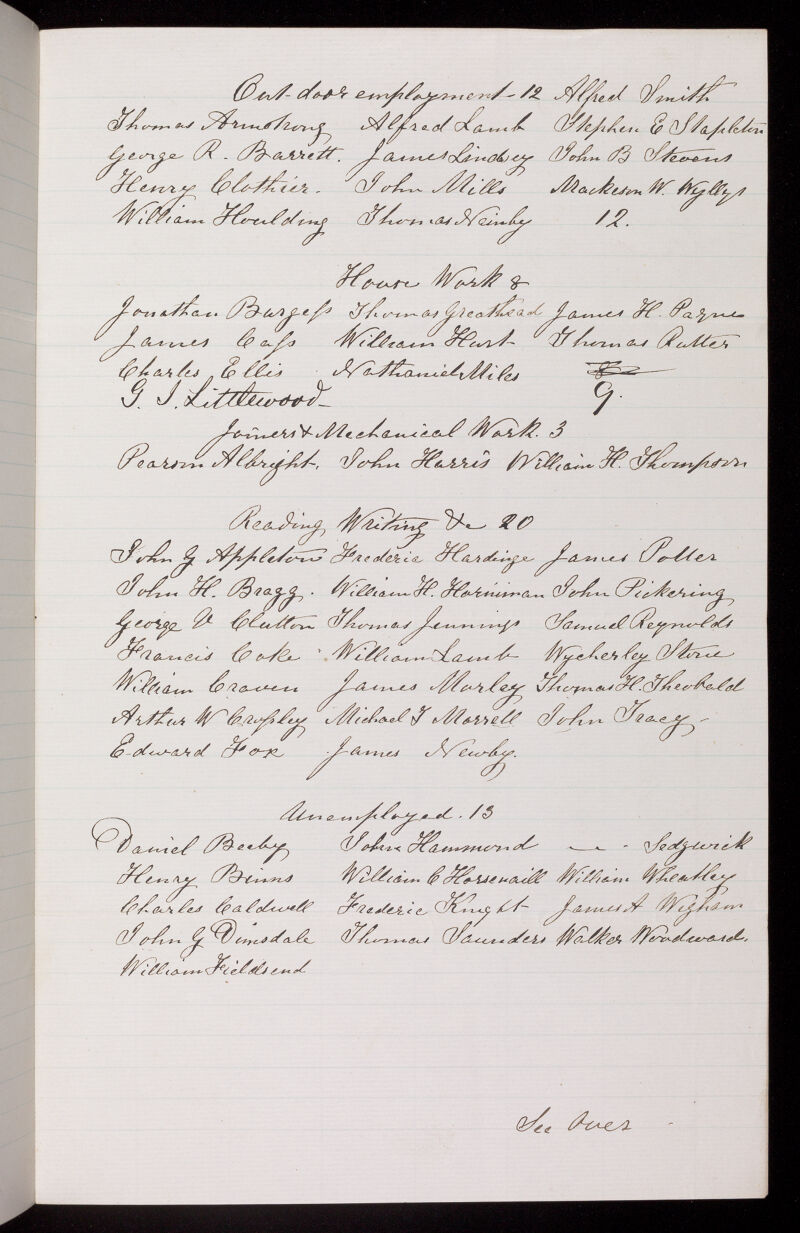 Out-door employment - 12 Alfred Smith
Thomas Armstrong Alfred Lamb Stephen E Stapleton
George R. Barrett. James Lindsey John B Stevens
Henry Clothier. John Mills Mackeson W. Wyllys
William Houlding Thomas Neinby 12.
House Work 8
Jonathan Burgess Thomas Greathead James H. Payne
James Cass William Hurt Thomas Rutter
Charles Ellis Nathaniel Miles 8
G. J. Littlewood 9.
Joiners & Mechanical Work. 3
Pearson Albright. John Harris William H. Thompson
Reading, Writing &c 20
John G Appleton Frederic Hardinge James Potter
John H. Bragg. William H. Horniman John Pickering
George V Clutton Thomas Jennings Samuel Reynolds
Francis Coke William Lamb Wycherley Stone
William Craven James Morley Thomas H. Theobald
Arthur W Cropley Michael T Morrell John Tracy
Edward Fox James Newby.
Unemployed. 13
Daniel Beeby John Hammond — - Sedgwick
Henry Binns William C Horsenaill William Wheatley
Charles Caldwell Frederic Knight James A Wigham
John G Dimsdale Thomas Saunders Walker Woodward.
William Fieldsend
See Over